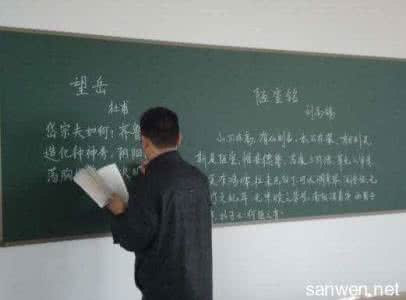 望岳
杜甫
岱宗夫如何：齐鲁
造化种神奇，阴阳
荡胸
陋室铭
刘禹锡
山不在高，有仙则名，水不在深，有龙则灵
斯是陋室，惟吾德馨，苔痕上阶绿，草色入帘青
笑有鸿儒，往来无白丁，可以调素琴，阅金经，无
竹之乱耳，无案牍之劳形，南阳诸葛庐，西蜀子
云亭，孔子云：何陋之有
sanwen.net